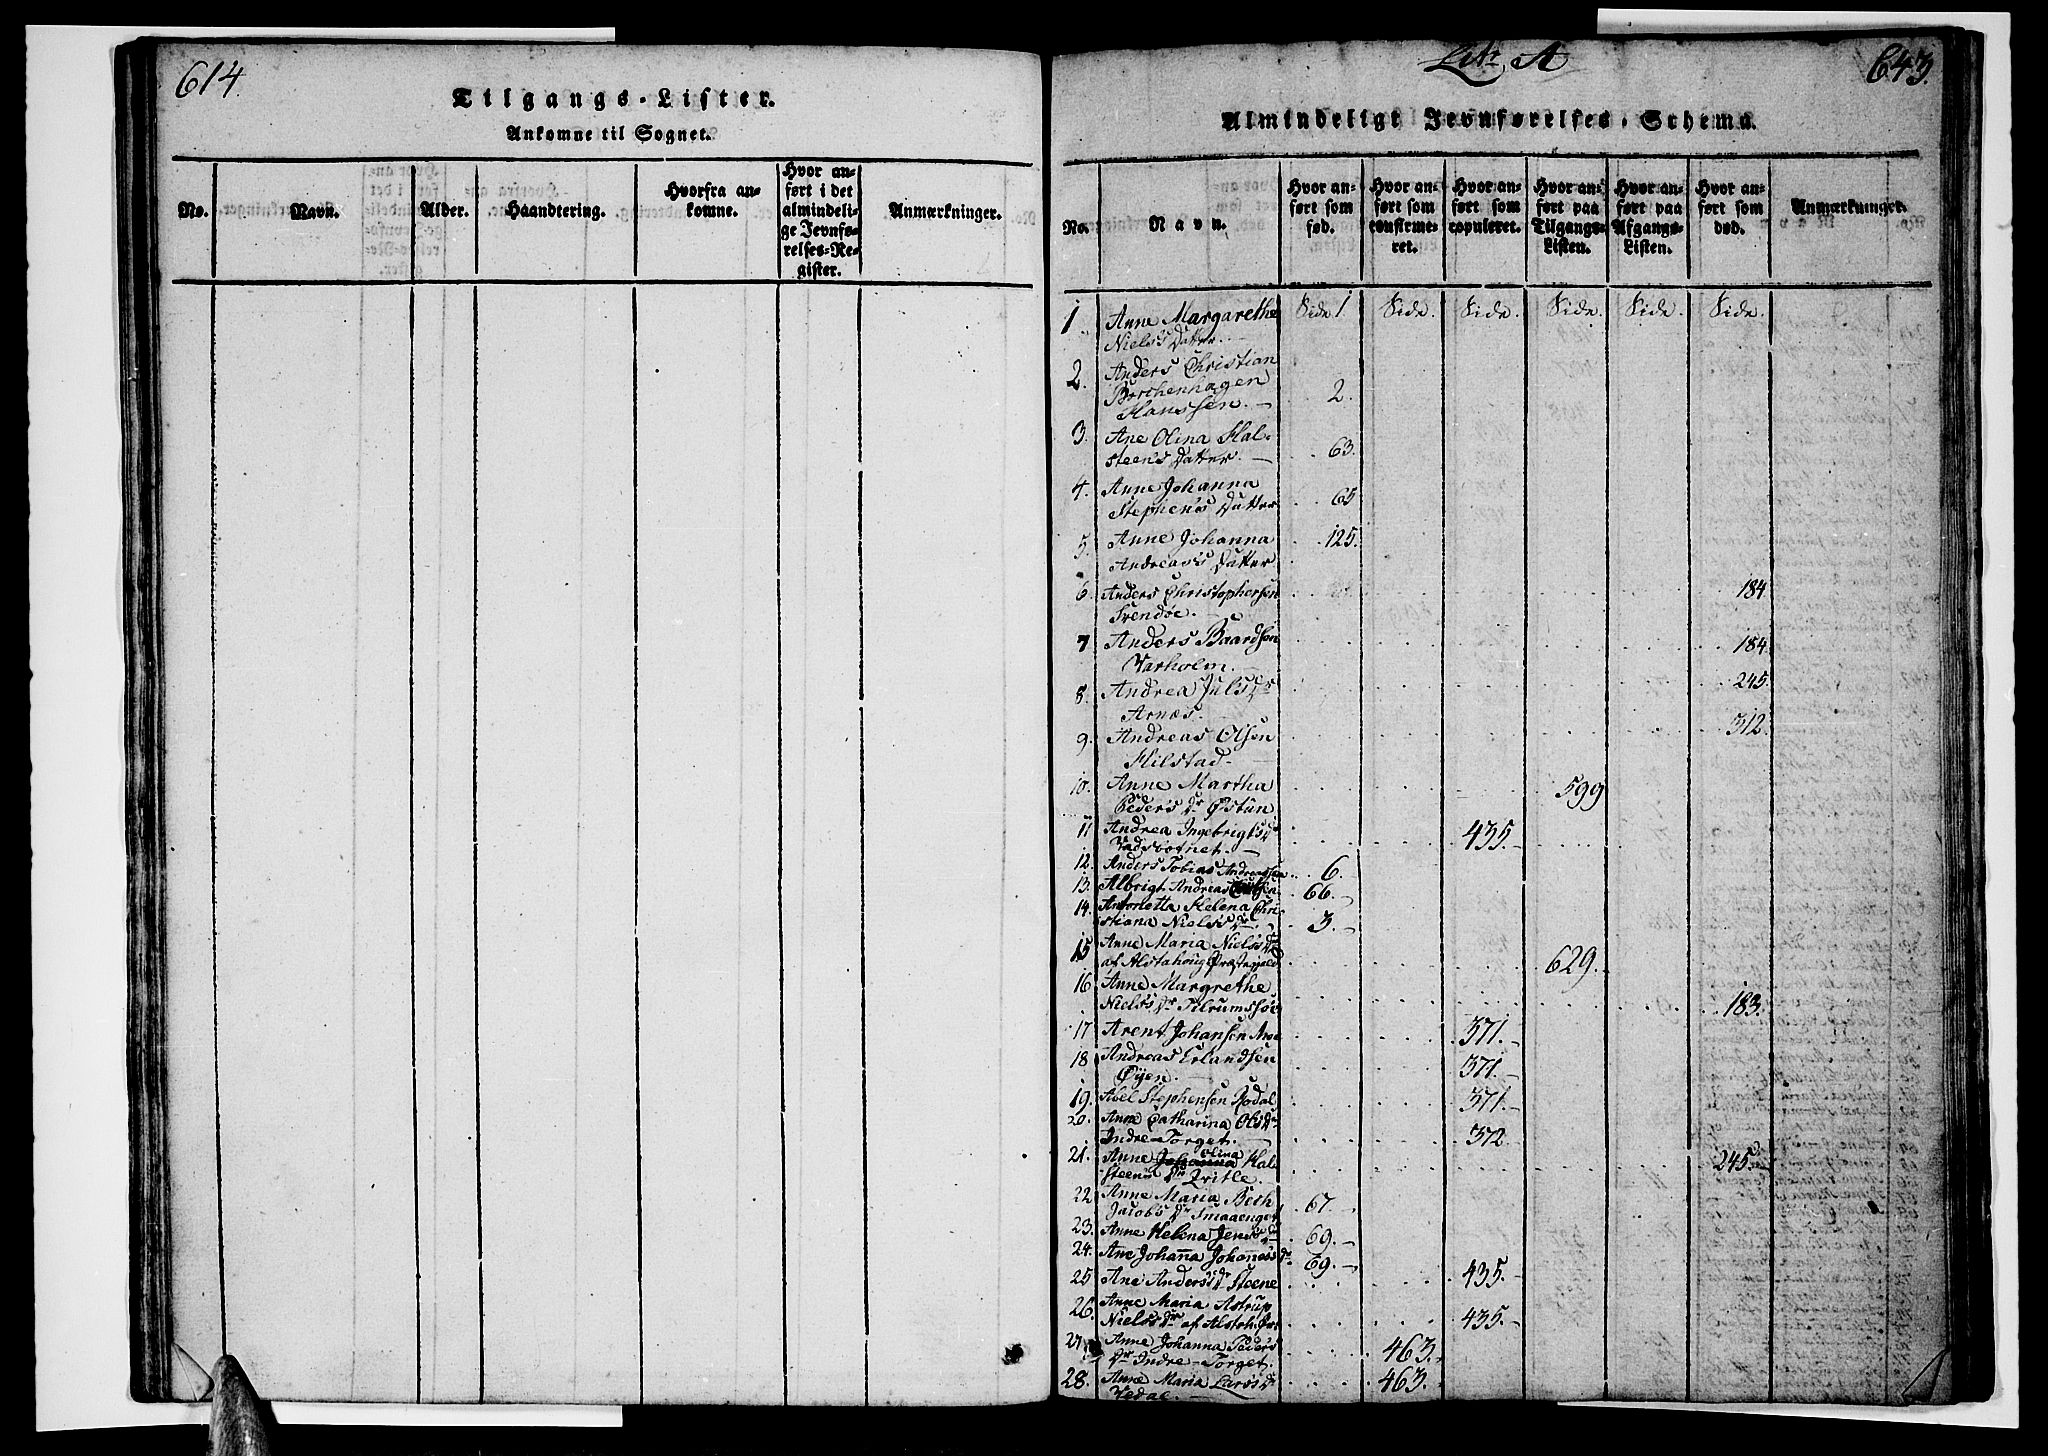 614.
Tilgangs-Lister.
Ankomne til Sognet.
No.
Navn.
Alder.
Haandtering.
Hvorfra an-
komne.
Hvor an-
ført i det
almindeli-
ge Jevnfø-
relses-Re-
gister.
Anmærkninger.
Litr. A
643.
Almindeligt Jevnførelses-Schema.
No.
Navn.
Hvor an-
ført som
fød.
Hvor an-
ført som
confirme-
ret.
Hvor an-
ført som
copuleret.
Hvor an-
ført paa
Tilgangs-
Listen.
Hvor an-
ført paa
Afgangs-
Listen.
Hvor an-
ført som
død.
Anmærkninger.
1 Anne Margarethe Side 1. Side. Side. Side. Side. Side.
Niels's Datter.
2. Anders Christian
Borchenhagen 2.
Hanssen.
3. Ane Olina Hal-
steen's Datter. 63.
4. Anne Johanna
Stephen's Datter 65
5. Anne Johanna 125.
Andreas's Datter
6. Anders Christophersen 184
Trendøe.
7 Anders Baardsen 184
Varholm.
8. Andrea Juls Dr 245.
Arnæs.
9. Andreas Olsen 312.
Hilstad.
10. Anne Martha 599
Peders Dr Østun
11 Andrea Ingebrigts Dr 435.
Vadsbotnet.
12. Anders Tobias Andreassen 6.
13. Albrigt Andreas 66.
14. Antonetta Helena Chri-
stiana Niels's Dr 3.
15 Anne Maria Niels's Dr
af Alstahoug Præstegjeld 629.
16 Anne Margrethe
Niels's Dr Tilrumshøe 183.
17 Arent Johansen Moe 371.
18 Andreas Erlandsen 371.
Øyen.
19. Abel Stephensen Rodal 371.
20. Anne Catharina Ols Dr
Indre-Torget. 372
21. Anne Johanna Olina Hal- 245.
steens Dr Qvitle.
22 Anne Maria Beth 67.
Jacobs Dr Smaaenget
23. Anne Helena Jens Dr 69.
24. Ane Johanna Johannes Dr 69.
25 Ane Anders's Dr Steene 435.
26. Anne Maria Astrup
Niels's Dr af Alstah. Pr. 435.
27 Anne Johanna Peders 463.
Dr Indre-Torget.
28. Anne Maria Lars's Dr 463.
Vedal